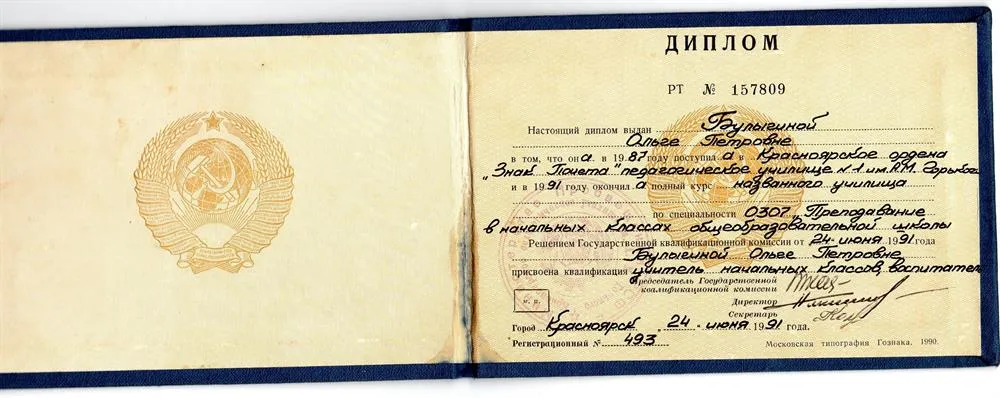 ДИПЛОМ
РТ № 157809
Настоящий диплом выдан Булыгиной
Ольге Петровне
в том, что она в 1987 году поступила в Красноярское ордена
"Знак Почета" педагогическое училище №1 им. А.М. Горького
и в 1991 году окончила полный курс названного училища
по специальности 0307 „Преподавание
в начальных классах общеобразовательной школы
Решением Государственной квалификационной комиссии от 24 июня 1991 года
Булыгиной Ольге Петровне
присвоена квалификация учитель начальных классов, воспитатель
Председатель Государственной
квалификационной комиссии
Директор
Секретарь
м. п.
Город Красноярск 24 июня 1991 года.
Регистрационный № 493
Московская типография Гознака. 1990.